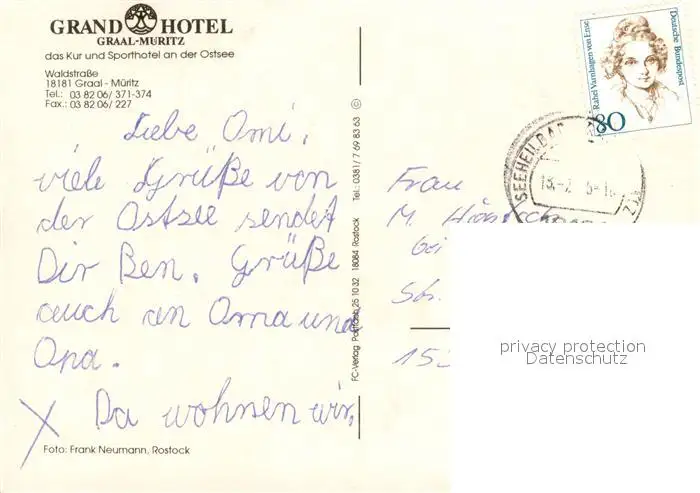 GRAND HOTEL
GRAAL-MÜRITZ
das Kur und Sporthotel an der Ostsee
Waldstraße
18181 Graal - Müritz
Tel.: 03 82 06/ 371-374
Fax.: 03 82 06/ 227
Liebe Omi,
viele Grüße von
der Ostsee sendet
Dir Ben. Grüße
auch an Oma und
Opa.
X Da wohnen wir.
Foto: Frank Neumann, Rostock
FC-Verlag Postfach 25 10 32 18084 Rostock Tel.: 0381/ 7 69 83 63 ©
Deutsche Bundespost
Rahel Varnhagen von Ense
80
SEEHEILBAD
Frau
M.
bei
Str.
privacy protection
Datenschutz